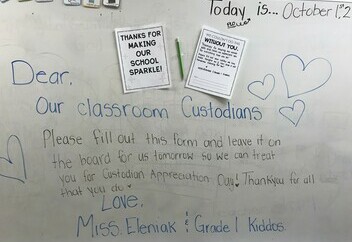 Today is... October 1st, 2
THANKS FOR
MAKING
OUR
SCHOOL
SPARKLE!
WE COULDN'T DO THIS
WITHOUT YOU.
Dear,
Our classroom Custodians
Please fill out this form and leave it on
the board for us tomorrow so we can treat
you for Custodian Appreciation Day! Thankyou for all
that you do
Love,
Miss. Eleniak & Grade 1 Kiddos